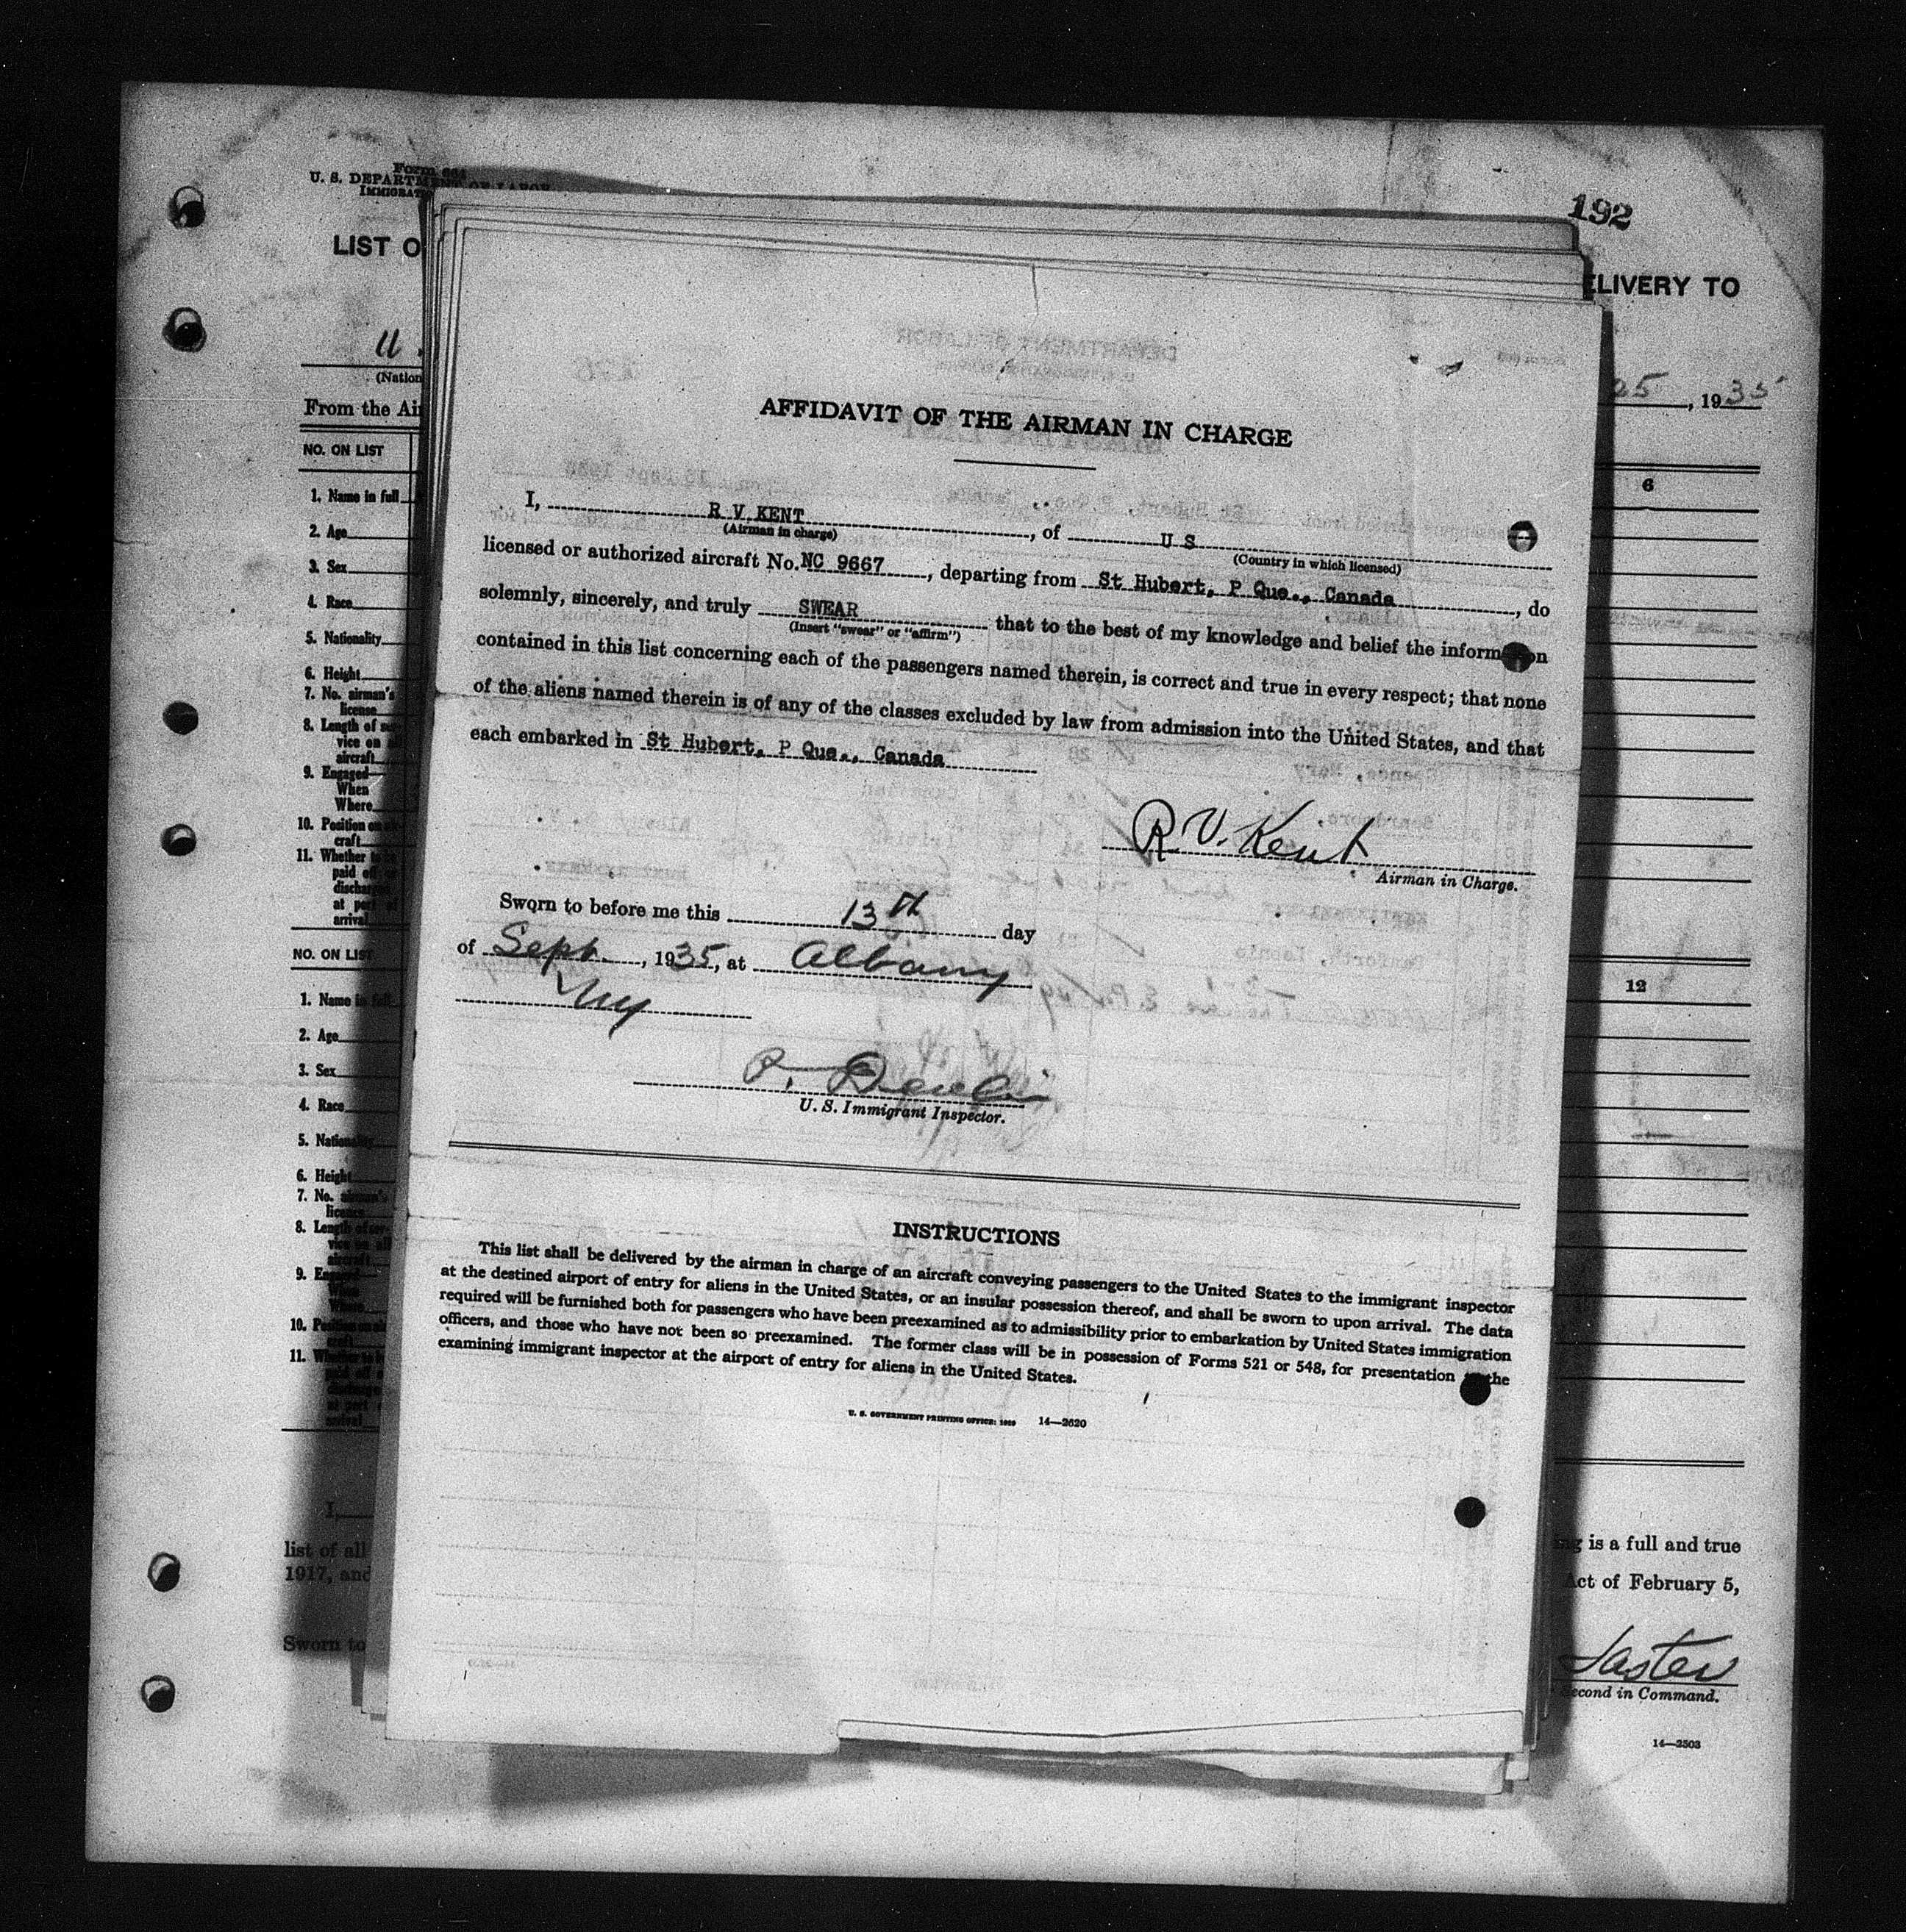 U. S. DEPARTMENT OF LABOR
192
LIST O
ELIVERY TO
U.
(Nation
From the Air
25, 1935
NO. ON LIST
6
1. Name in full
2. Age
3. Sex
4. Race
5. Nationality
6. Height
7. No. airman's
license
8. Length of ser-
vice on all
aircraft
9. Engaged—
When
Where
10. Position on air-
craft
11. Whether to be
paid off or
discharged
at port of
arrival
NO. ON LIST
12
1. Name in full
2. Age
3. Sex
4. Race
5. Nationality
6. Height
7. No. airman's
license
8. Length of ser-
vice on all
aircraft
9. Engaged
When
Where
10. Position on air-
craft
11. Whether to be
paid off or
discharged
at port of
arrival
I,
list of all
ing is a full and true
1917, and
Act of February 5,
Sworn to
Second in Command.
14—2503
AFFIDAVIT OF THE AIRMAN IN CHARGE
I, R V KENT, of U S
(Airman in charge) (Country in which licensed)
licensed or authorized aircraft No. NC 9667, departing from St Hubert, P Que., Canada, do
solemnly, sincerely, and truly SWEAR that to the best of my knowledge and belief the information
(Insert "swear" or "affirm")
contained in this list concerning each of the passengers named therein, is correct and true in every respect; that none
of the aliens named therein is of any of the classes excluded by law from admission into the United States, and that
each embarked in St Hubert, P Que., Canada
R. V. Kent
Airman in Charge.
Sworn to before me this 13th day
of Sept., 1935, at Albany
NY
U. S. Immigrant Inspector.
INSTRUCTIONS
This list shall be delivered by the airman in charge of an aircraft conveying passengers to the United States to the immigrant inspector
at the destined airport of entry for aliens in the United States, or an insular possession thereof, and shall be sworn to upon arrival. The data
required will be furnished both for passengers who have been preexamined as to admissibility prior to embarkation by United States immigration
officers, and those who have not been so preexamined. The former class will be in possession of Forms 521 or 548, for presentation to the
examining immigrant inspector at the airport of entry for aliens in the United States.
U. S. GOVERNMENT PRINTING OFFICE: 14—2620